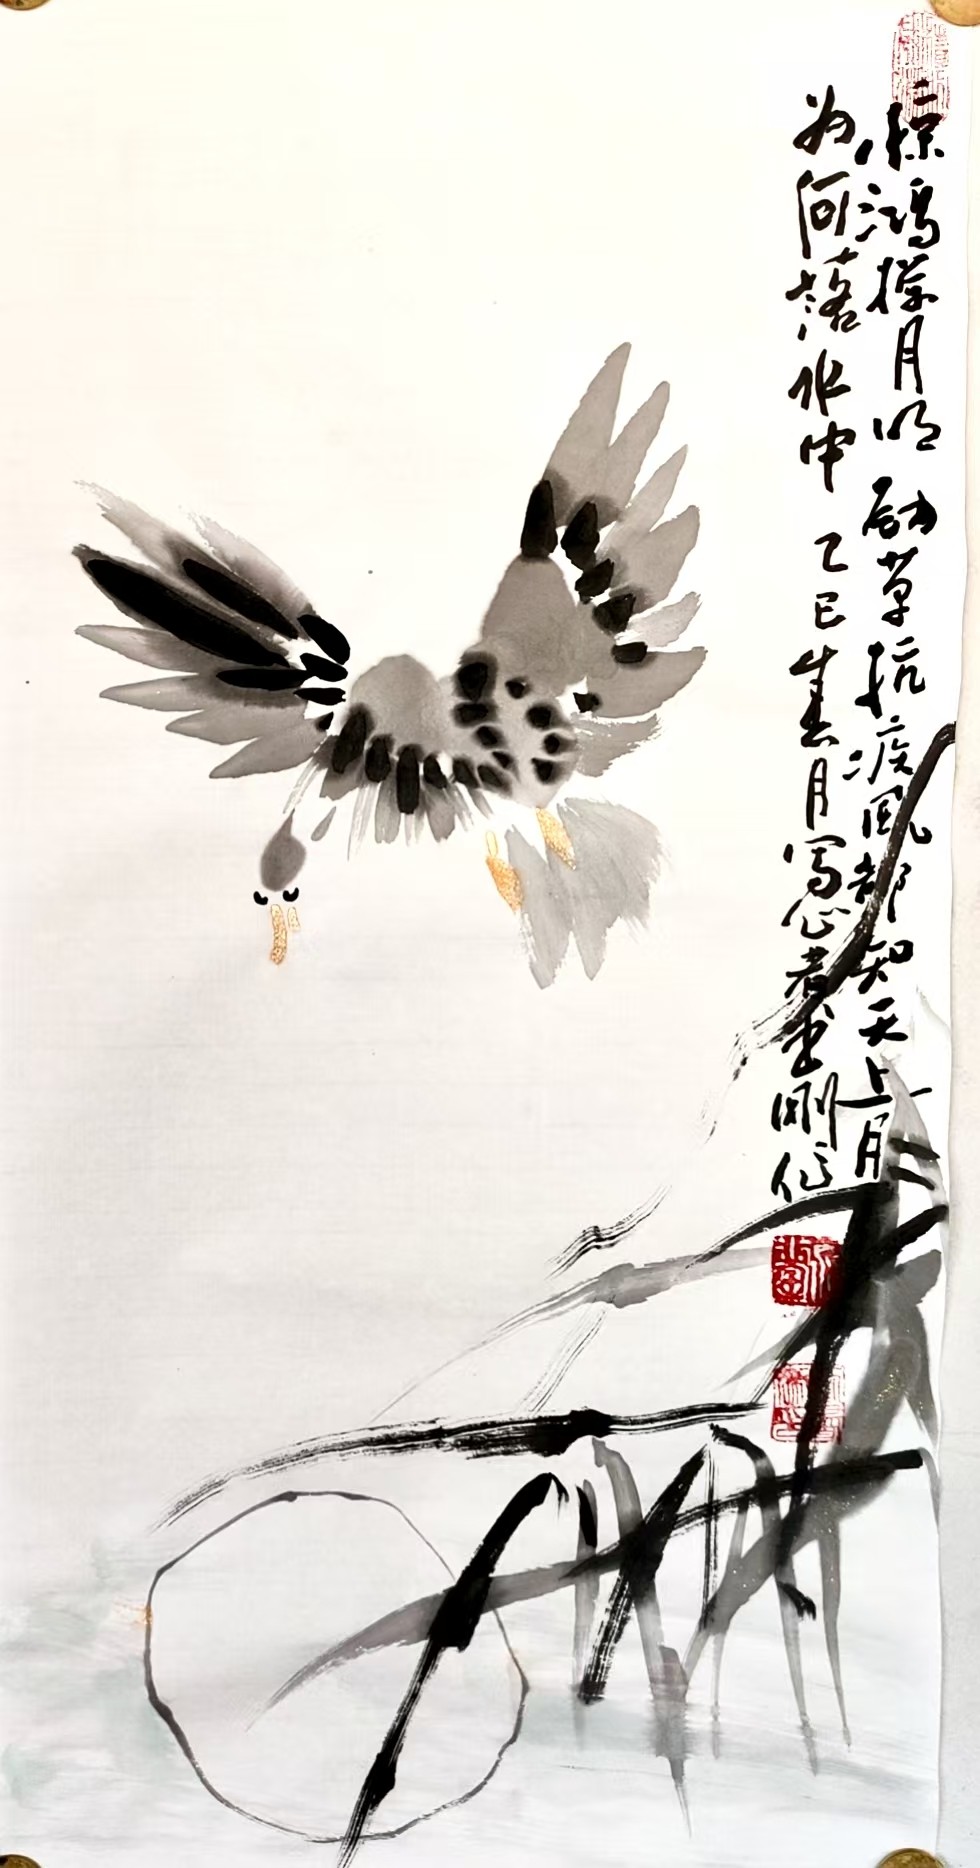 惊鸿月明劲草抗疾风都知天上月
为何落水中乙巳春月写心者刚作